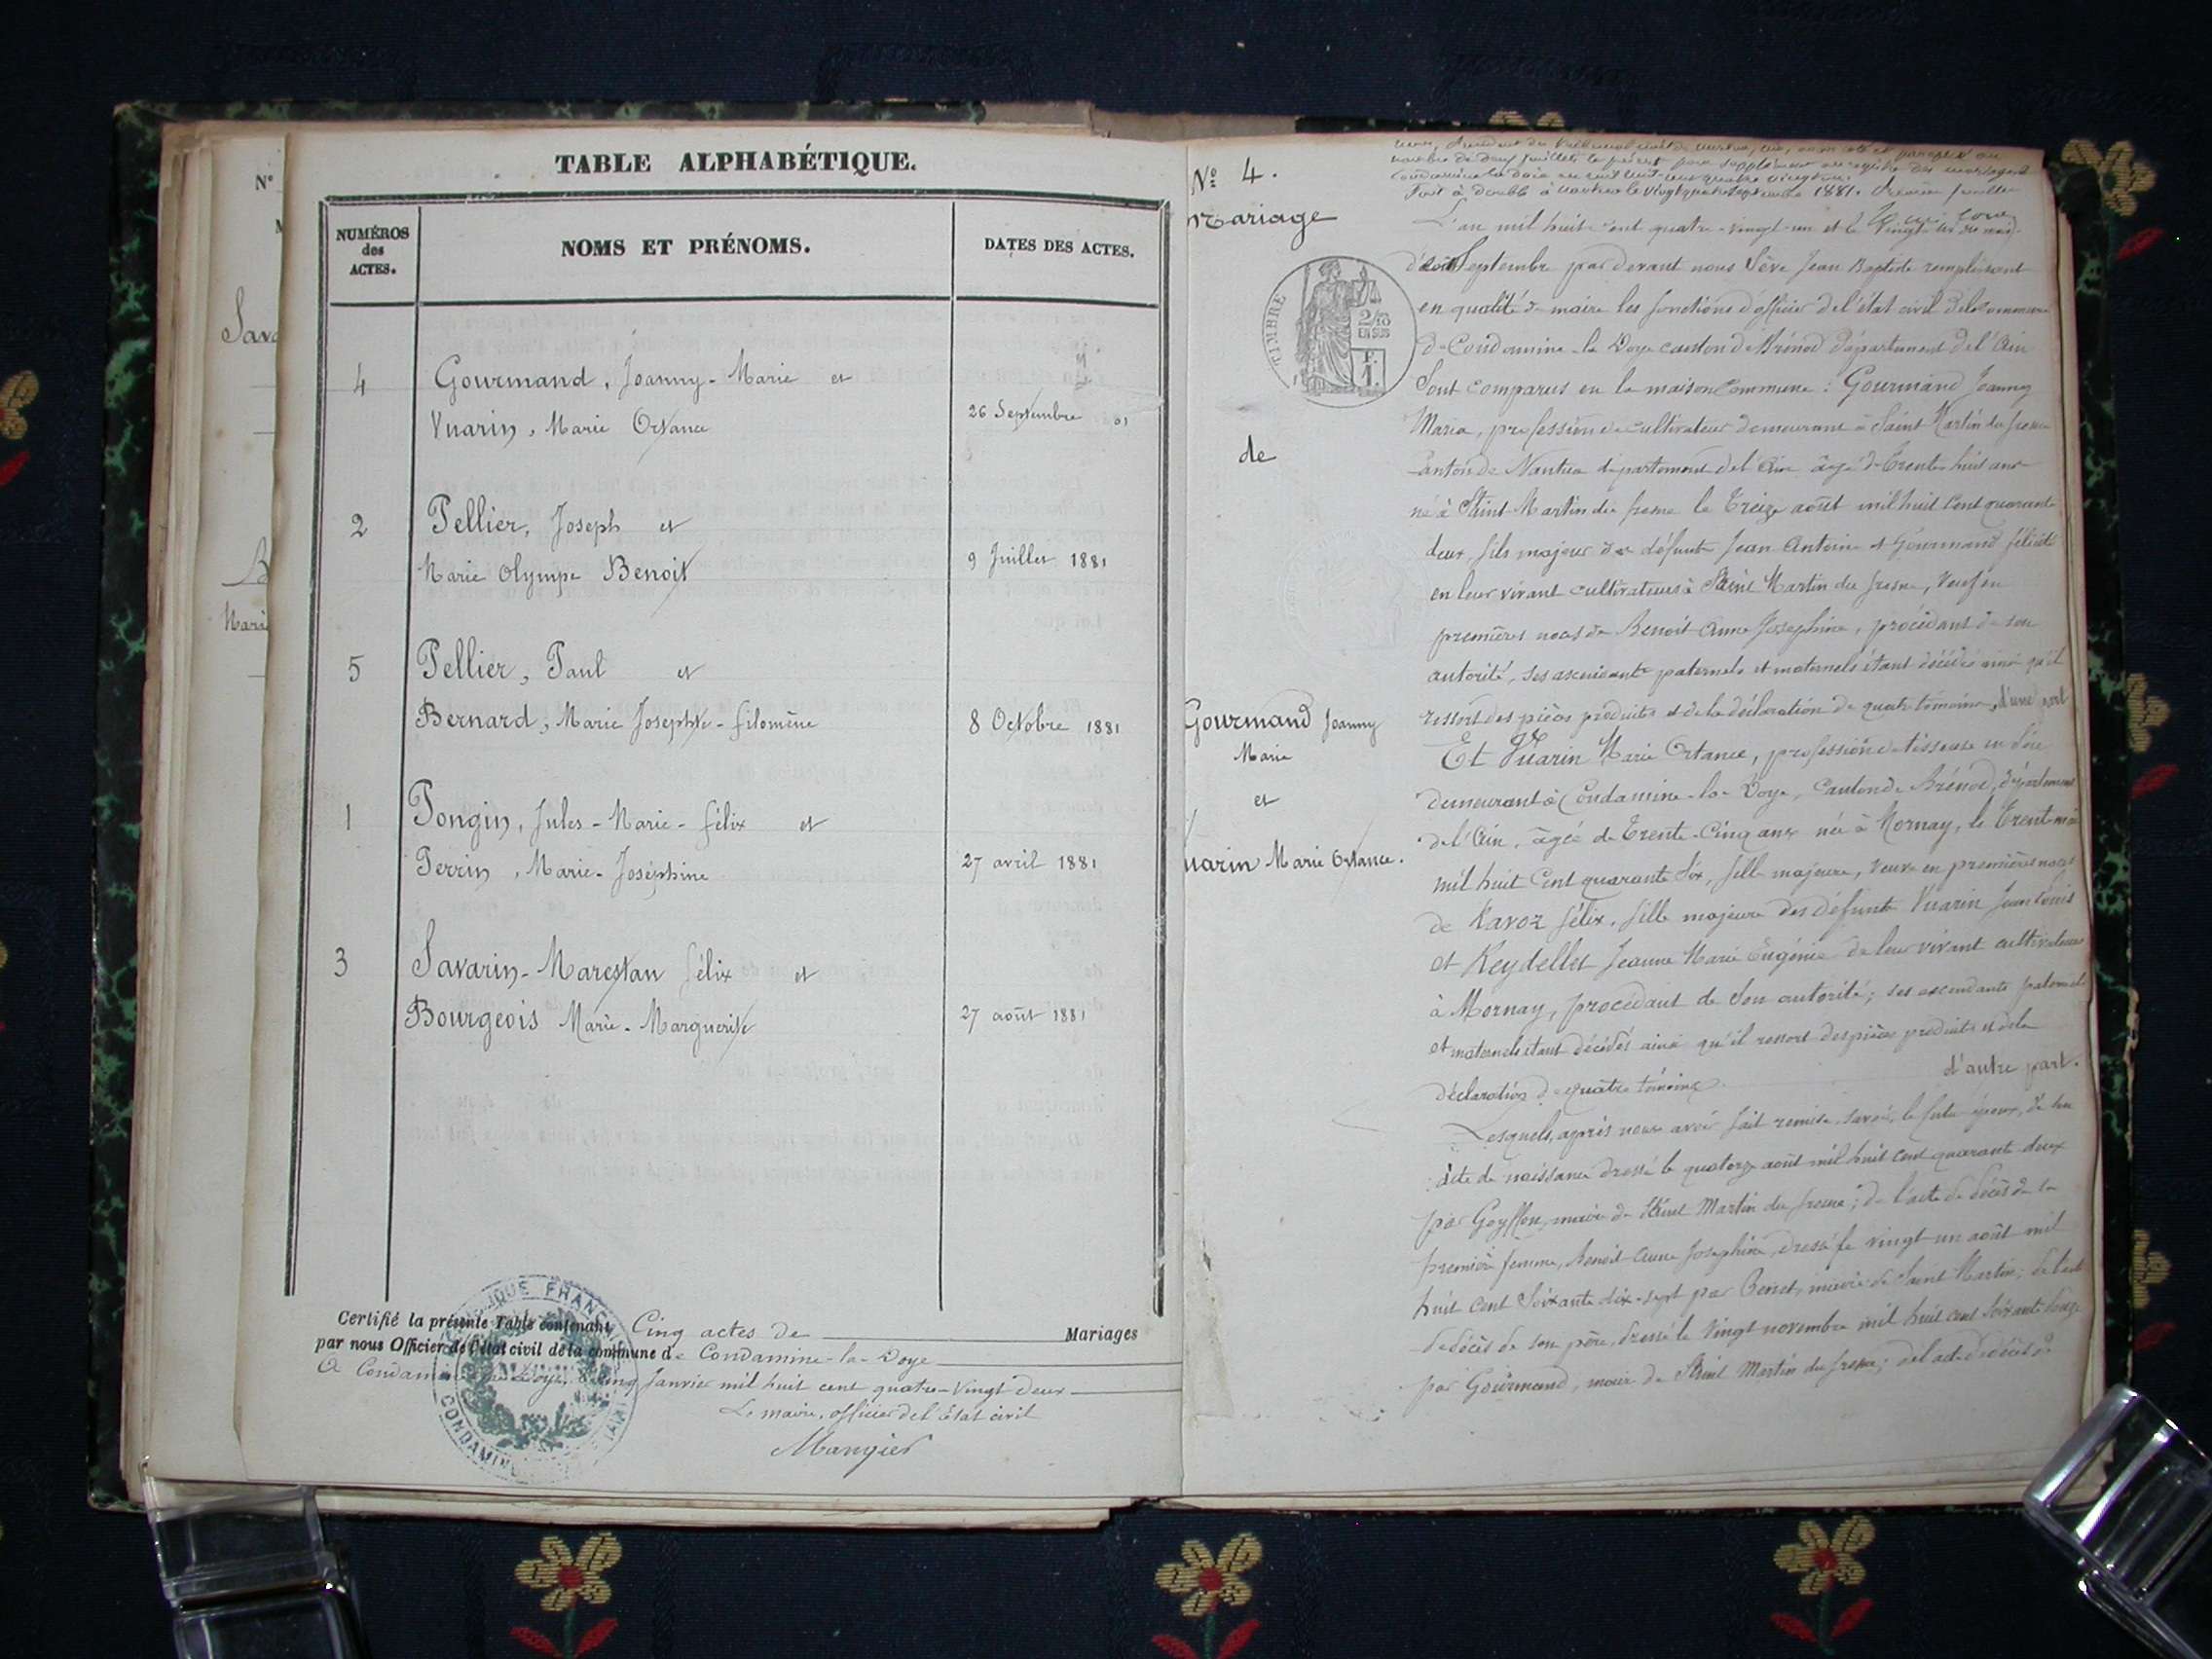 N°
TABLE ALPHABÉTIQUE.
NUMÉROS
des
ACTES.
NOMS ET PRÉNOMS.
DATES DES ACTES.
4 Gourmand, Joanny-Marie et
Vuarin, Marie Ortance 26 Septembre 81
2 Pellier, Joseph et
Marie Olympe Benoit 9 Juillet 1881
5 Pellier, Paul et
Bernard, Marie Josephte-filomène 8 Octobre 1881
1 Pongin, Jules-Marie-félix et
Perrin, Marie-Joséphine 27 avril 1881
3 Savarin-Marestan félix et
Bourgeois Marie-Marguerite 27 août 1881
Certifié la présente Table contenant Cinq actes de Mariages
par nous Officier de l'état civil de la commune de Condamine-la-Doye
A Condamine la Doye, cinq Janvier mil huit cent quatre-vingt deux
Le maire, officier de l'état civil
Mangier
N° 4.
Mariage
TIMBRE
2/10
EN SUS
F.
1.
de
Gourmand Joanny
Marie
et
Vuarin Marie Ortance.
Fait à double à Nantua le vingt quatre septembre 1881.
L'an mil huit cent quatre-vingt-un et le vingt six du mois
de Septembre par devant nous Sève Jean Baptiste remplissant
en qualité de maire les fonctions d'officier de l'état civil de la commune
de Condamine-la Doye canton de Brénod département de l'Ain
Sont comparus en la maison Commune : Gourmand Joanny
Maria, profession de cultivateur demeurant à Saint Martin du fresne
canton de Nantua département de l'Ain âgé de Trente huit ans
né à Saint Martin du fresne le Treize août mil huit Cent quarante
deux, fils majeur de défunts Jean Antoine et Gourmand félicité
en leur vivant cultivateurs à Saint Martin du fresne, Veuf en
premières noces de Benoit Anne Josephine, procédant de son
autorité, ses ascendants paternels et maternels étant décédés ainsi qu'il
ressort des pièces produites et de la déclaration de quatre témoins, d'une part
Et Vuarin Marie Ortance, profession de tisseuse en soie
demeurant à Condamine-la-Doye, Canton de Brénod, département
de l'Ain, âgée de Trente-Cinq ans née à Mornay, le Trente mai
mil huit Cent quarante Six, fille majeure, veuve en premières noces
de Ravoz félix, fille majeure des défunts Vuarin Jean Louis
et Reydellet Jeanne Marie Eugénie de leur vivant cultivateurs
à Mornay, procédant de Son autorité; ses ascendants paternels
et maternels étant décédés ainsi qu'il ressort des pièces produites et de la
déclaration de quatre témoins d'autre part.
Lesquels, après nous avoir fait remise savoir, le futur époux, de son
acte de naissance dressé le quatorze août mil huit cent quarante deux
par Goyffon, maire de Saint Martin du fresne; de l'acte de décès de sa
première femme, Benoit Anne Josephine, dressé le vingt un août mil
huit cent Soixante dix-sept par Benet, maire de Saint Martin; de l'acte
de décès de son père, dressé le Vingt novembre mil huit cent soixante douze
par Gourmand, maire de Saint Martin du fresne; de l'acte de décès de